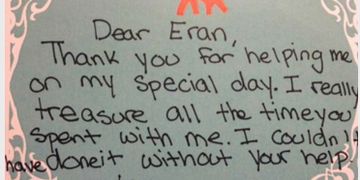 Dear Eran,
Thank you for helping me
on my special day. I really
treasure all the time you
spent with me. I couldn't
have done it without your help!